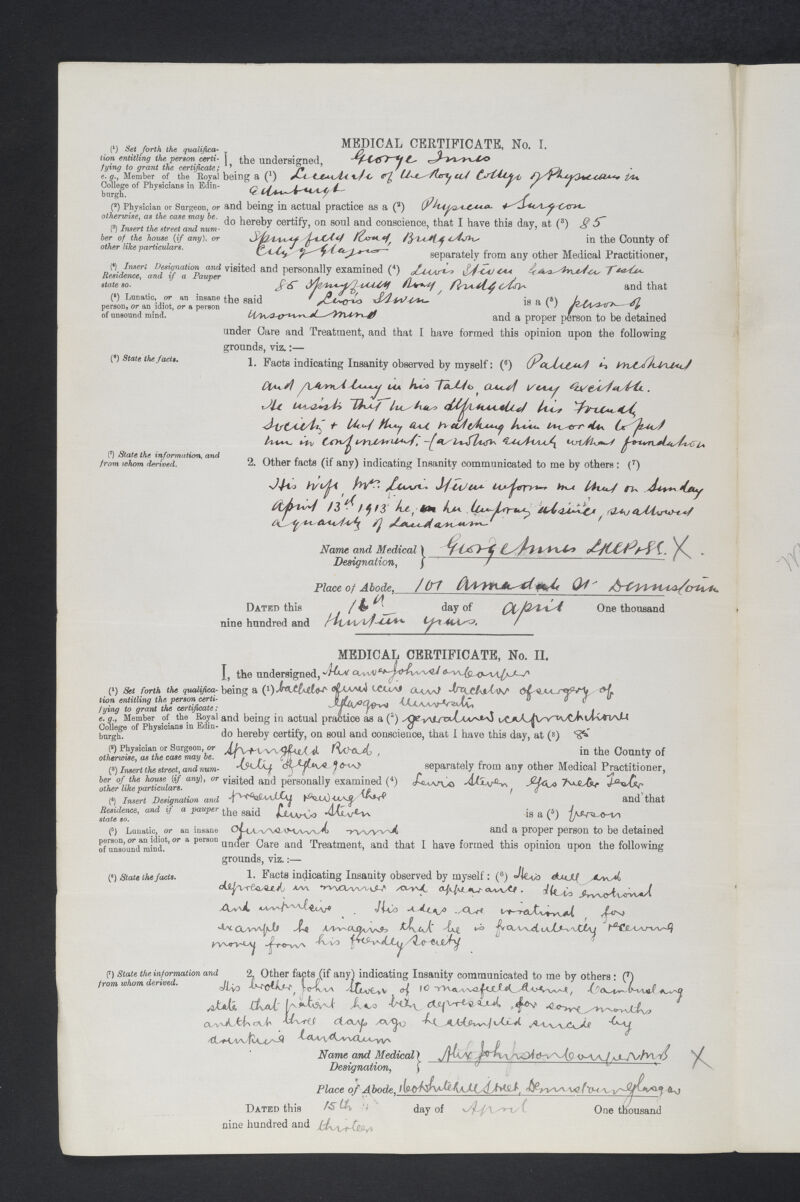 MEDICAL CERTIFICATE, No. I.
(¹) Set forth the qualifica-
tion entitling the person certi-
fying to grant the certificate;
e.g., Member of the Royal
College of Physicians in Edin-
burgh.
I, the undersigned, George Innes
being a (¹) Licentiate of the Royal College of Physicians in
Edinburgh
(²) Physician or Surgeon, or
otherwise, as the case may be.
and being in actual practice as a (²) Physician & Surgeon
(³) Insert the street and num-
ber of the house (if any), or
other like particulars.
do hereby certify, on soul and conscience, that I have this day, at (³) 85
Springfield Road, Bridgeton in the County of
City of Glasgow separately from any other Medical Practitioner,
(⁴) Insert Designation and
Residence, and if a Pauper
state so.
visited and personally examined (⁴) Lewis Steven Gas Meter Tester
85 Springfield Road, Bridgeton and that
(⁵) Lunatic, or an insane
person, or an idiot, or a person
of unsound mind.
the said Lewis Steven is a (⁵) person of
unsound mind and a proper person to be detained
under Care and Treatment, and that I have formed this opinion upon the following
grounds, viz.:—
(⁶) State the facts.
1. Facts indicating Insanity observed by myself: (⁶) Patient is incoherent
and rambling in his talk, and very excitable.
He insists that he has defrauded his Friendly
Society & that they are watching him in order to put
him in confinement,- (a notion entirely without foundation
(⁷) State the information, and
from whom derived.
2. Other facts (if any) indicating Insanity communicated to me by others: (⁷)
His wife, Mrs. Lewis Steven informs me that on Sunday
April 13th 1913 he, in her temporary absence, swallowed
a quantity of Laudanum
Name and Medical Designation, George Innes LRCP&SE. X.
Place of Abode, 101 Armadale St Dennistoun
DATED this 16th day of April One thousand
nine hundred and thirteen years.
MEDICAL CERTIFICATE, No. II.
I, the undersigned, Alexander Johnston Couper
(¹) Set forth the qualifica-
tion entitling the person certi-
fying to grant the certificate;
e.g., Member of the Royal
College of Physicians in Edin-
burgh.
being a (¹) bachelor of medicine and bachelor of surgery of
Glasgow University
and being in actual practice as a (²) general medical practitioner
do hereby certify, on soul and conscience, that I have this day, at (³) 85
(²) Physician or Surgeon, or
otherwise, as the case may be.
Springfield Road, in the County of
City of Glasgow separately from any other Medical Practitioner,
(³) Insert the street, and num-
ber of the house (if any), or
other like particulars.
visited and personally examined (⁴) Lewis Steven, Gas Meter Tester
(⁴) Insert Designation and
Residence, and if a pauper
state so.
presently residing there and that
the said Lewis Steven is a (⁵) person
(⁵) Lunatic, or an insane
person, or an idiot, or a person
of unsound mind.
of unsound mind and a proper person to be detained
under Care and Treatment, and that I have formed this opinion upon the following
grounds, viz.:—
(⁶) State the facts.
1. Facts indicating Insanity observed by myself: (⁶) He is dull and
depressed in manner and appearance. He is emotional
and impulsive. His ideas are irrational, for
example he imagines that he is fraudulently receiving
money from his friendly society
(⁷) State the information and
from whom derived.
2. Other facts (if any) indicating Insanity communicated to me by others: (⁷)
His brother, John Steven of 10 Mansfield Avenue, Cambuslang
states that patient has been depressed for some months
and that three days ago he attempted suicide by
drinking laudanum
Name and Medical Designation, Alex Johnston Couper M.B X
Place of Abode, Whitehill Street, Dennistoun Glasgow
DATED this 15th day of April One thousand
nine hundred and thirteen